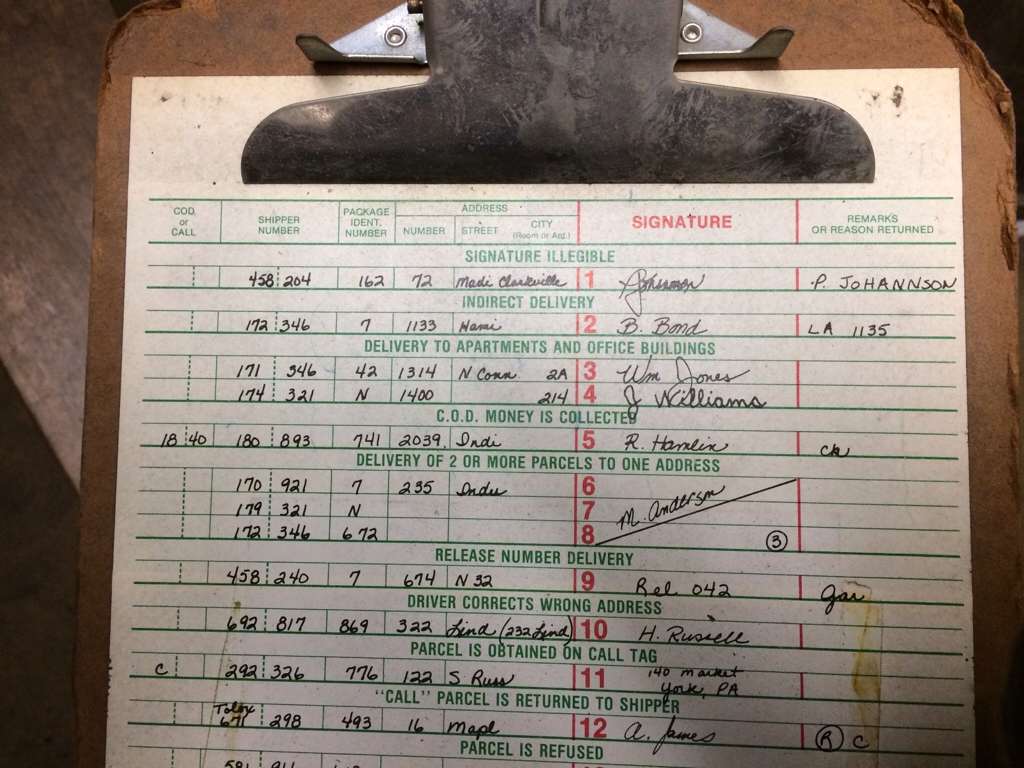 COD or CALL SHIPPER NUMBER PACKAGE IDENT. NUMBER ADDRESS NUMBER STREET CITY (Room or Apt.) SIGNATURE REMARKS OR REASON RETURNED
SIGNATURE ILLEGIBLE
458 204 162 72 Madi Clarkville 1 P. JOHANNSON
INDIRECT DELIVERY
172 346 7 1133 2 B. Bond LA 1135
DELIVERY TO APARTMENTS AND OFFICE BUILDINGS
171 346 42 1314 N Conn 2A 3 Wm Jones
174 321 N 1400 214 4 J Williams
C.O.D. MONEY IS COLLECTED
18 40 180 893 741 2039 Indi 5 R. Hamlin ck
DELIVERY OF 2 OR MORE PARCELS TO ONE ADDRESS
170 921 7 235 6
179 321 N 7 M. Anderson
172 346 672 8 3
RELEASE NUMBER DELIVERY
458 240 7 674 N 32 9 Rel 042 Gar
DRIVER CORRECTS WRONG ADDRESS
692 817 869 322 Lind (232 Lind) 10 H. Russell
PARCEL IS OBTAINED ON CALL TAG
C 292 326 776 122 S Russ 11 140 market York, PA
"CALL" PARCEL IS RETURNED TO SHIPPER
671 298 493 16 Mapl 12 A. James R C
PARCEL IS REFUSED